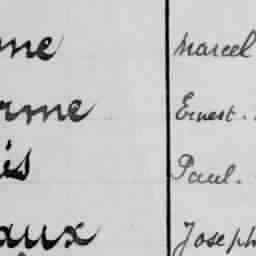 me Marcel
rme Ernest.
is Paul.
aux Joseph